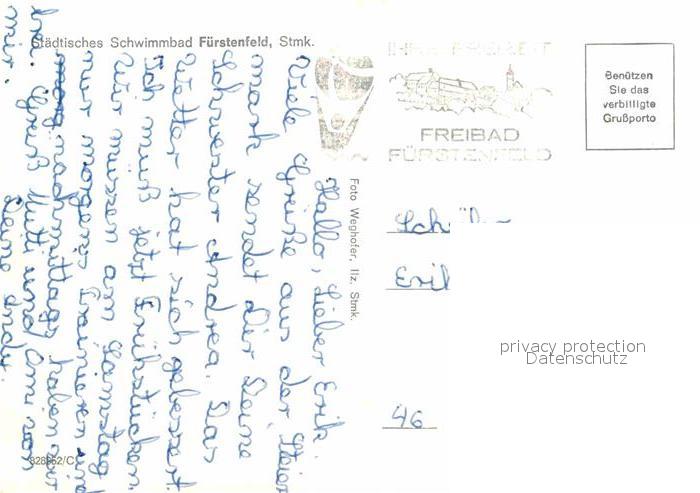 Städtisches Schwimmbad Fürstenfeld, Stmk.
FREIBAD
FÜRSTENFELD
Benützen
Sie das
verbilligte
Grußporto
Hallo, Lieber Erik.
Viele Grüße aus der Steier
mark sendet Dir Deine
Schwester Andrea. Das
Wetter hat sich gebessert.
Ich muß jetzt Frühstücken.
Wir müssen am Samstag
nur morgens trainieren und
nachmittags haben wir
frei. Gruß Mutti und Omi von
mir.
Deine Andy.
Foto Weghofer, Ilz, Stmk.
Erik
46
privacy protection
Datenschutz